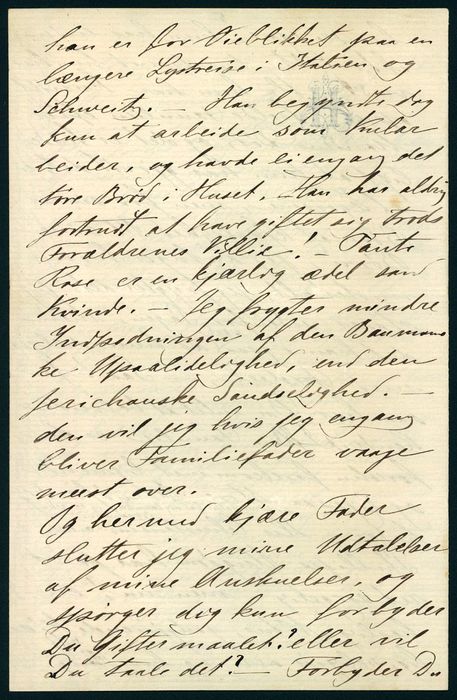 han er for Øieblikket paa en
længere Lystreise i Italien og
Schweitz. — Han begyndte dog
kun at arbeide som Kular
beider, og havde ei engang det
tøre Brød i Huset. Han har aldrig
fortrudt at have giftet sig trods
Forældrenes Villie! — Tante
Rose er en kjærlig ædel sand
Kvinde. — Jeg frygter mindre
Indpodningen af den Baumans
ke Upaalidelighed, end den
Jerichauske Sandselighed. —
den vil jeg hvis jeg engang
bliver Familiefader vaage
meest over.
Og hermed kjære Fader
slutter jeg mine Udtalelser
af mine Anskuelser, og
spørger dig kun forbyder
Du Giftermaalet? eller vil
Du taale det? — Forbyder Du